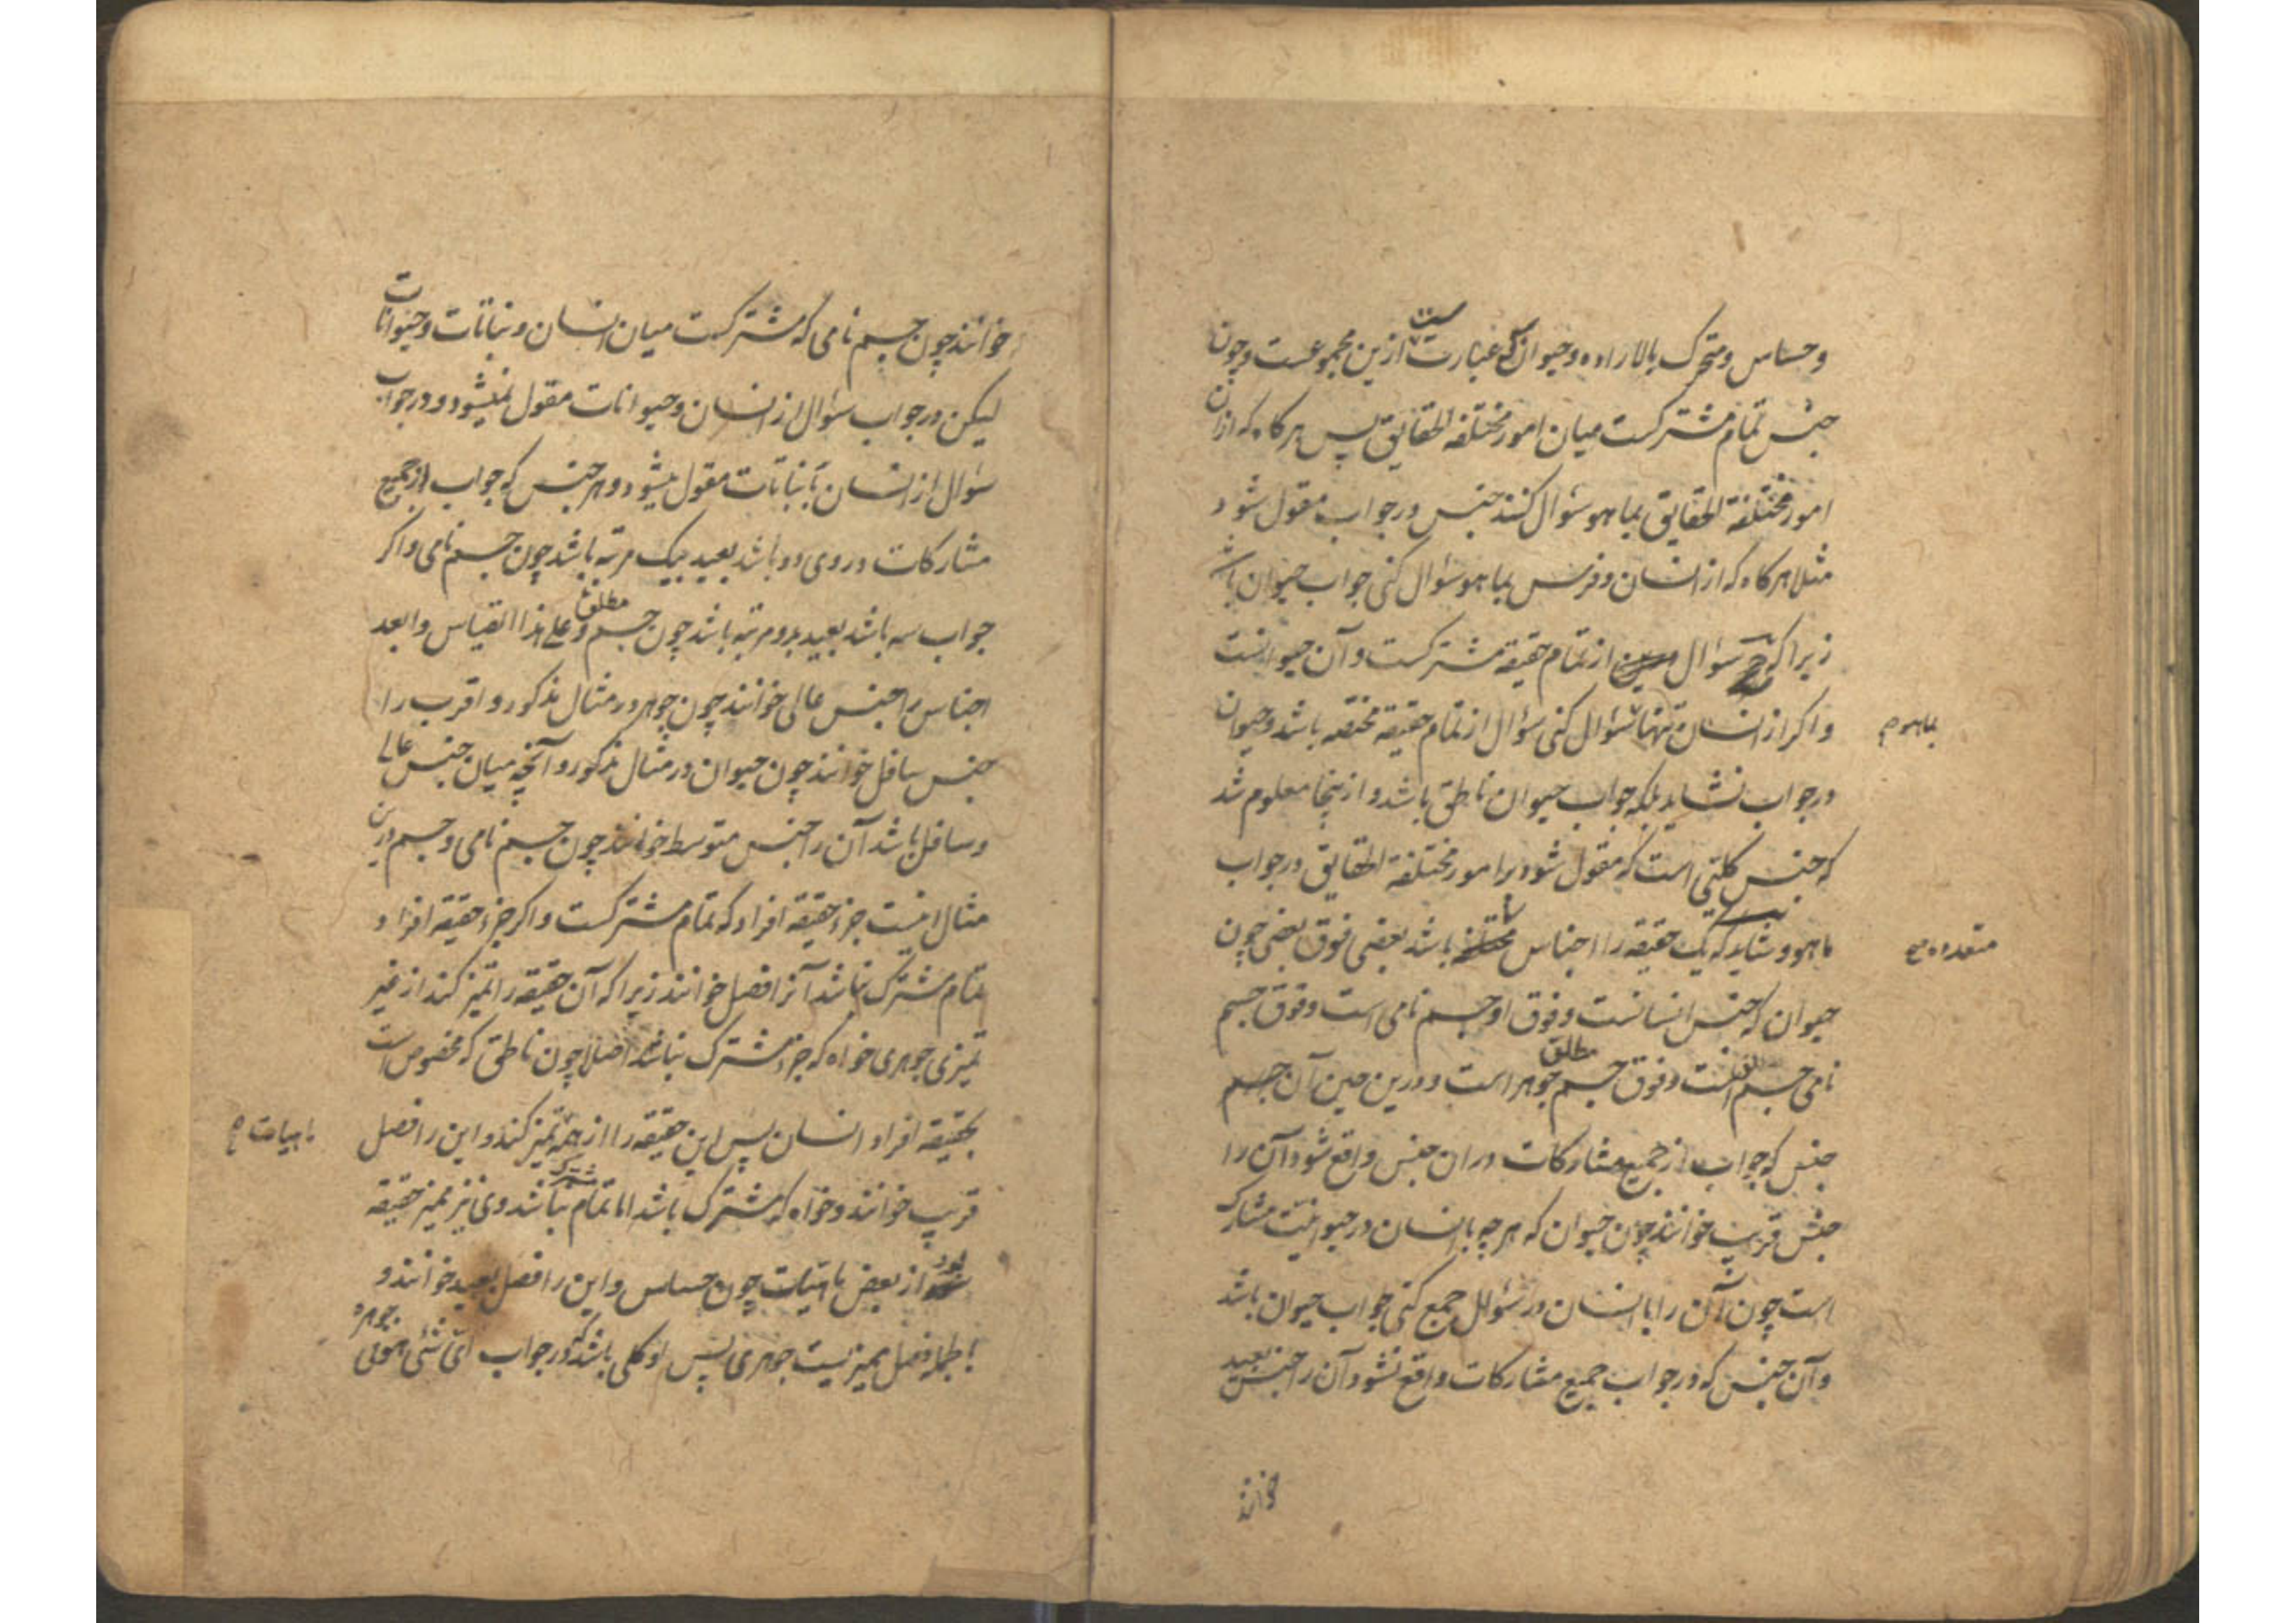 و حساس و متحرک بالاراده و حیوان که عبارت است ازین مجموعست و چون
جنس تمام مشترکست میان امور مختلفه الحقایق پس هرکاه که ازان
امور مختلفة الحقایق بما هو سؤال کنند جنس در جواب مقول شود
مثلا هرکاه که از انسان و فرس بما هو سؤال کنی جواب حیوان باشد
زیرا که سؤال از تمام حقیقه مشترکست و آن حیوانست
و اکر از انسان تنها سؤال کنی سؤال از تمام حقیقه مختصه باشد و حیوان
بماهو صح
در جواب نشاید بلکه جواب حیوان ناطق باشد و ازینجا معلوم شد
که جنس کلیی است که مقول شود بر امور مختلفة الحقایق در جواب
ماهو و شاید که یک حقیقه را اجناس باشد بعضی فوق بعضی چون
متعدده صح
حیوان که جنس انسانست و فوق او جسم نامی است و فوق جسم
نامی جسم مطلق است و فوق جسم مطلق جوهر است و درین حین آن
جنس که جواب از جمیع مشارکات دران جنس واقع شود آن را
جنس قریب خوانند چون حیوان که هر چه با انسان در حیوانیت مشارک
است چون آن را با انسان در سؤال جمع کنی جواب حیوان باشد
و آن جنس که در جواب جمیع مشارکات واقع نشود آن را جنس بعید
خوانند
خوانند چون جسم نامی که مشترکست میان انسان و نباتات و حیوانات
لیکن در جواب سؤال از انسان و حیوانات مقول نمیشود و در جواب
سؤال از انسان با نباتات مقول میشود و هر جنس که جواب از جمیع
مشارکات در وی دو باشد بعید بیک مرتبه باشد چون جسم نامی و اکر
جواب سه باشد بعید بدو مرتبه باشد چون جسم مطلق و علی هذا القیاس و ابعد
اجناس را جنس عالی خوانند چون جوهر در مثال مذکور و اقرب را
جنس سافل خوانند چون حیوان در مثال مذکور و آنچه میان جنس عالی
و سافل باشد آن را جنس متوسط خوانند چون جسم نامی و جسم درین
مثال اینست جزء حقیقه افراد که تمام مشترکست و اکر جزء حقیقه افراد
تمام مشترک نباشد آنرا فصل خوانند زیرا که آن حقیقه را تمیز کند از غیر
تمیزی جوهری خواه که جزء مشترک نباشد اصلا چون ناطق که مخصوص است
بحقیقه افراد انسان پس این حقیقه را از همه تمیز کند و این را فصل
ماهیات صح
قریب خوانند و خواه که مشترک باشد اما تمام مشترک نباشد وی نیز ممیز حقیقه
بود از بعض ماهیات چون حساس و این را فصل بعید خوانند و
بالجمله فصل ممیزیست جوهری پس او کلی باشد که در جواب ای شئ هو فی جوهره